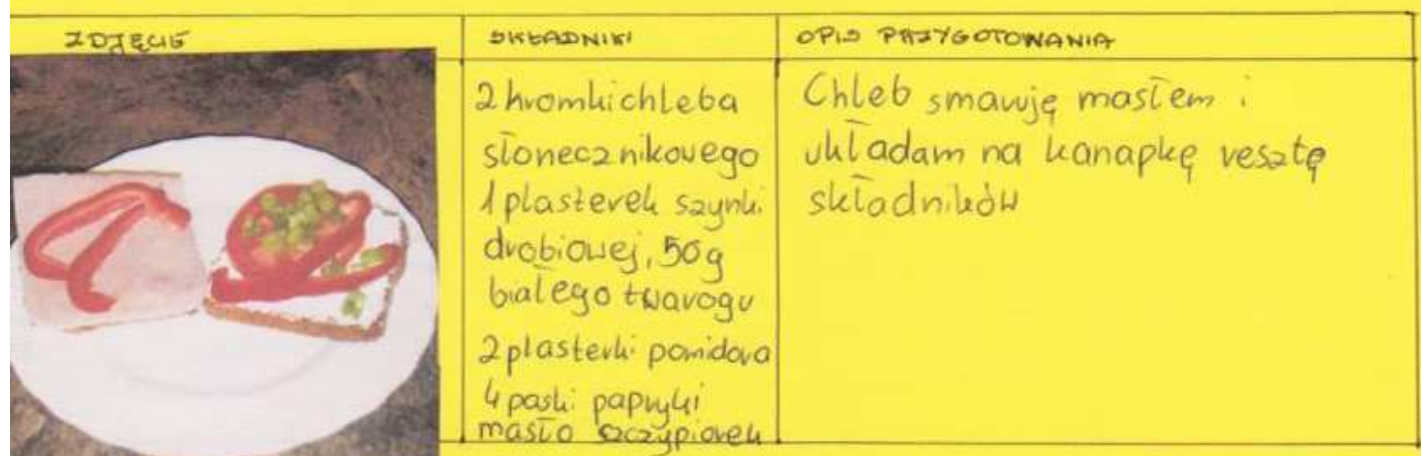 ZDJĘCIE
SKŁADNIKI
OPIS PRZYGOTOWANIA
2 kromki chleba
słonecznikowego
1 plasterek szynki
drobiowej, 50g
białego twarogu
2 plasterki pomidora
4 paski papryki
masło szczypiorek
Chleb smaruję masłem i
układam na kanapkę resztę
składników